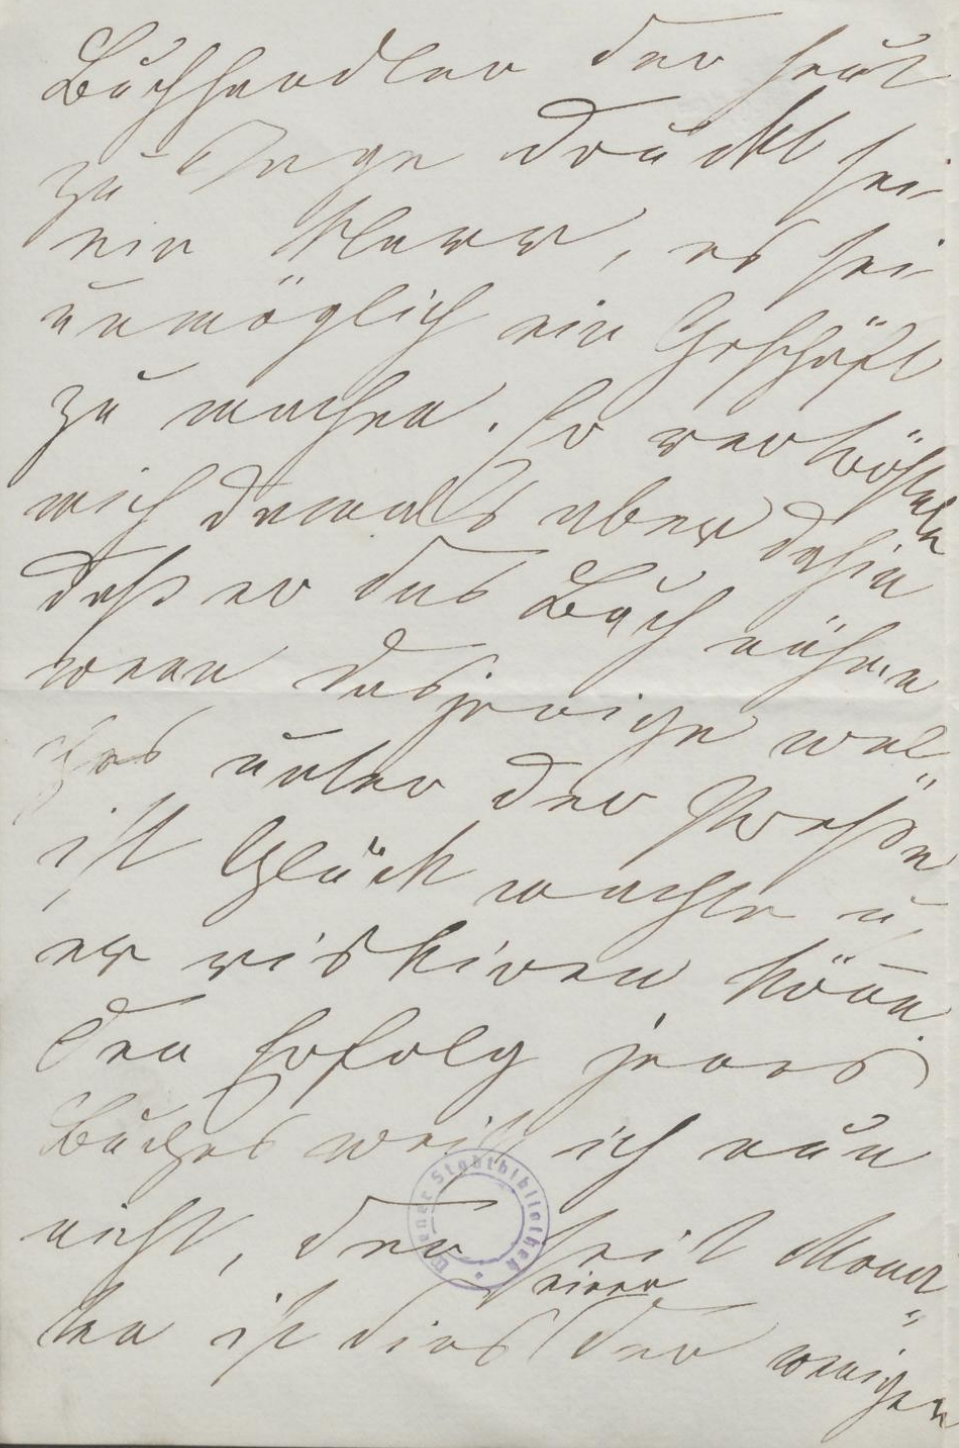 Buchhandler der heut
zu Tage druckt sei
ein Narr, es sei
unmöglich ein Geschäft
zu machen. Er vertröstete
mich damals aber dahin
daß er das Buch nähme
wenn dasjenige wel-
ches unter der Presse
ist Glück machte u.
er riskiren könne.
Den Erfolg jenes
Buches weiß ich nun
nicht, den seit Mona-
einer
ten ist dies der wenigen
Wiener Stadtbibliothek